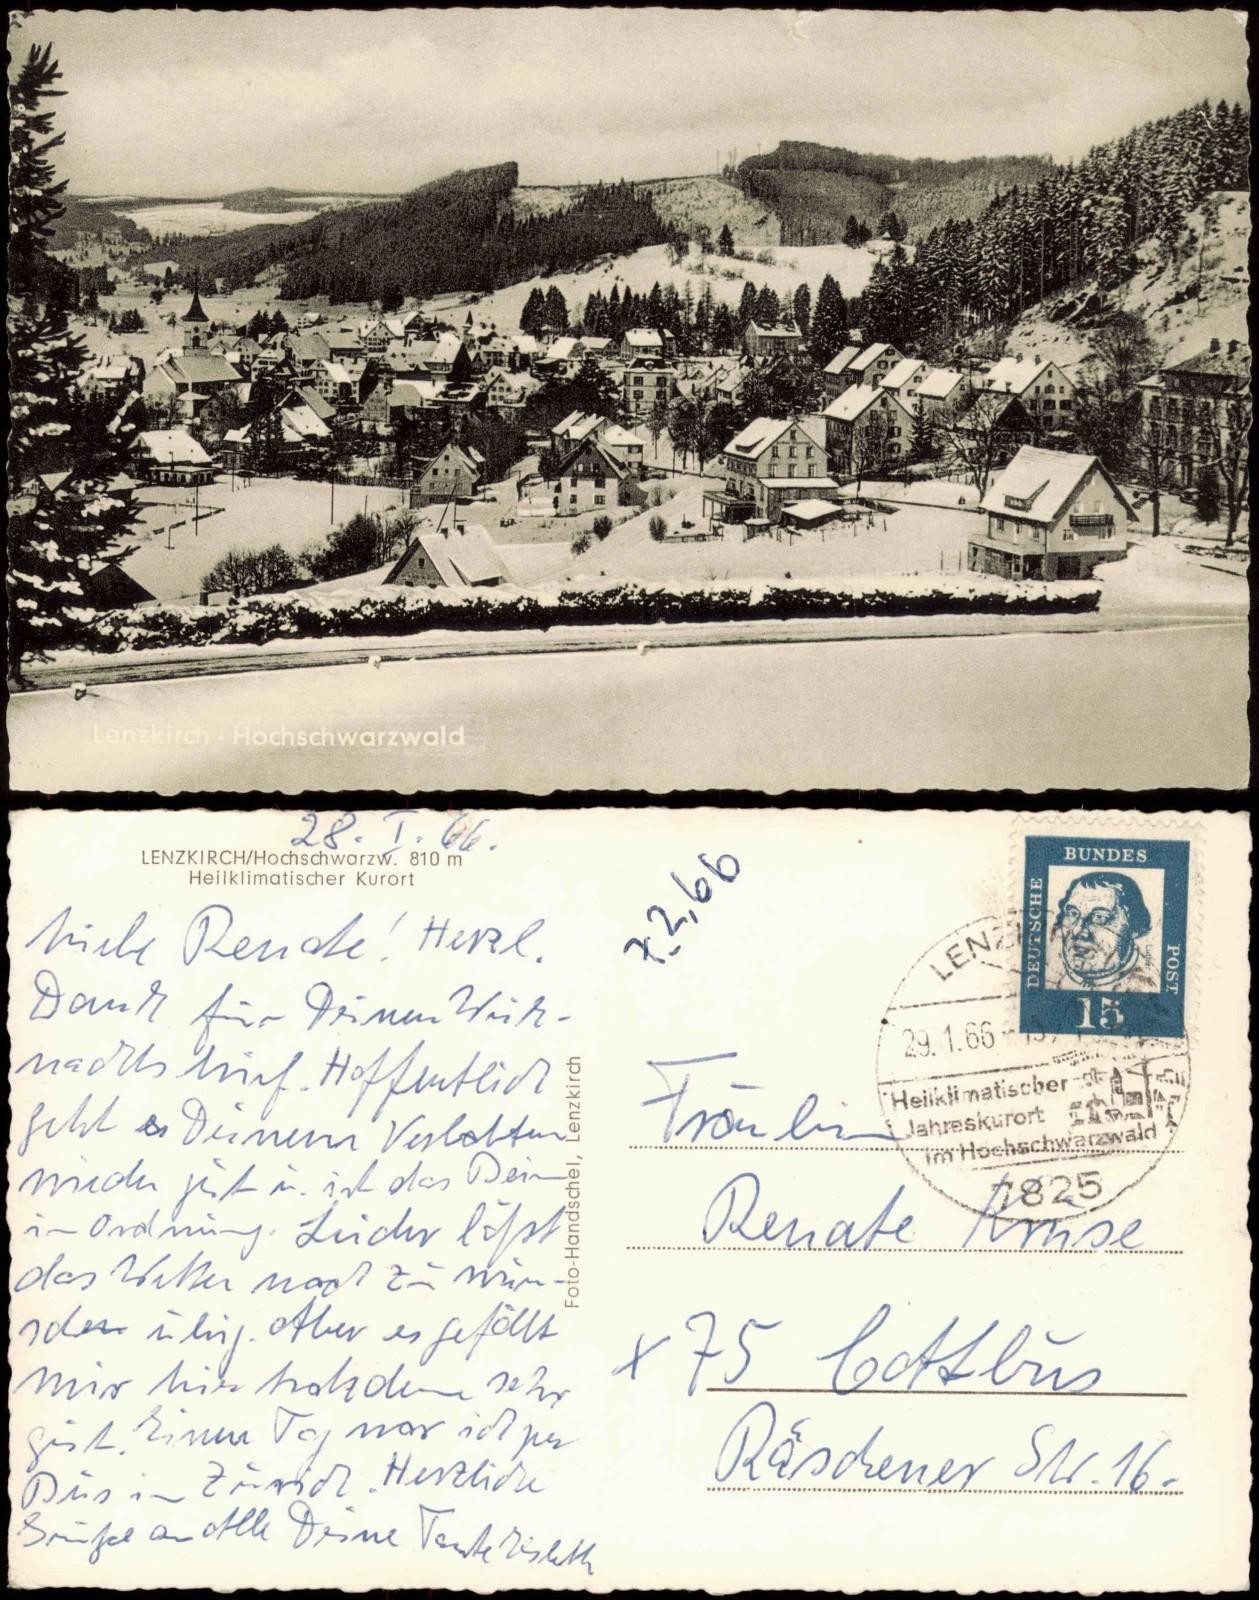 Lenzkirch - Hochschwarzwald
28. I. 66.
LENZKIRCH/Hochschwarzw. 810 m
Heilklimatischer Kurort
Liebe Renate! Herzl.
Dank für Deinen Weih-
nachtsbrief. Hoffentlich
geht es Deinem Verlobten
wieder gut u. ist das Bein
in Ordnung. Leider läßt
das Wetter noch zu wün-
schen übrig. Aber es gefällt
mir hier trotzdem sehr
gut. Einen Tag war ich per
Bus in Zürich. Herzliche
Grüße an Alle Deine Tante Liesbeth
Foto-Handschel, Lenzkirch
7.2.66
DEUTSCHE
BUNDES
POST
15
LENZ
29.1.66
Heilklimatischer
Jahreskurort
im Hochschwarzwald
7825
Fräulein
Renate Kruse
x 75 Cottbus
Räschener Str. 16.